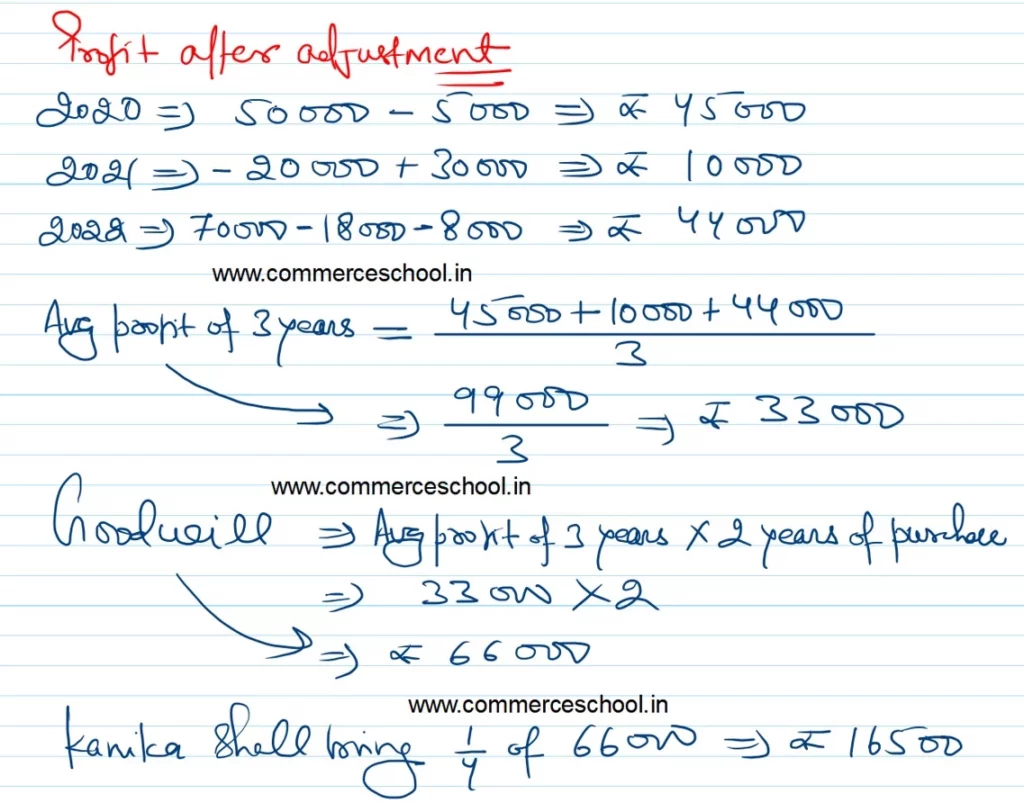 Profit after adjustment
2020 ⇒ 50000 - 5000 ⇒ ₹ 45000
2021 ⇒ - 20000 + 30000 ⇒ ₹ 10000
2022 ⇒ 70000 - 18000 - 8000 ⇒ ₹ 44000
www.commerceschool.in
Avg profit of 3 years = 45000 + 10000 + 44000 / 3
⇒ 99000 / 3 ⇒ ₹ 33000
www.commerceschool.in
Goodwill ⇒ Avg profit of 3 years × 2 years of purchase
⇒ 33000 × 2
⇒ ₹ 66000
www.commerceschool.in
Kanika shall bring 1/4 of 66000 ⇒ ₹ 16500